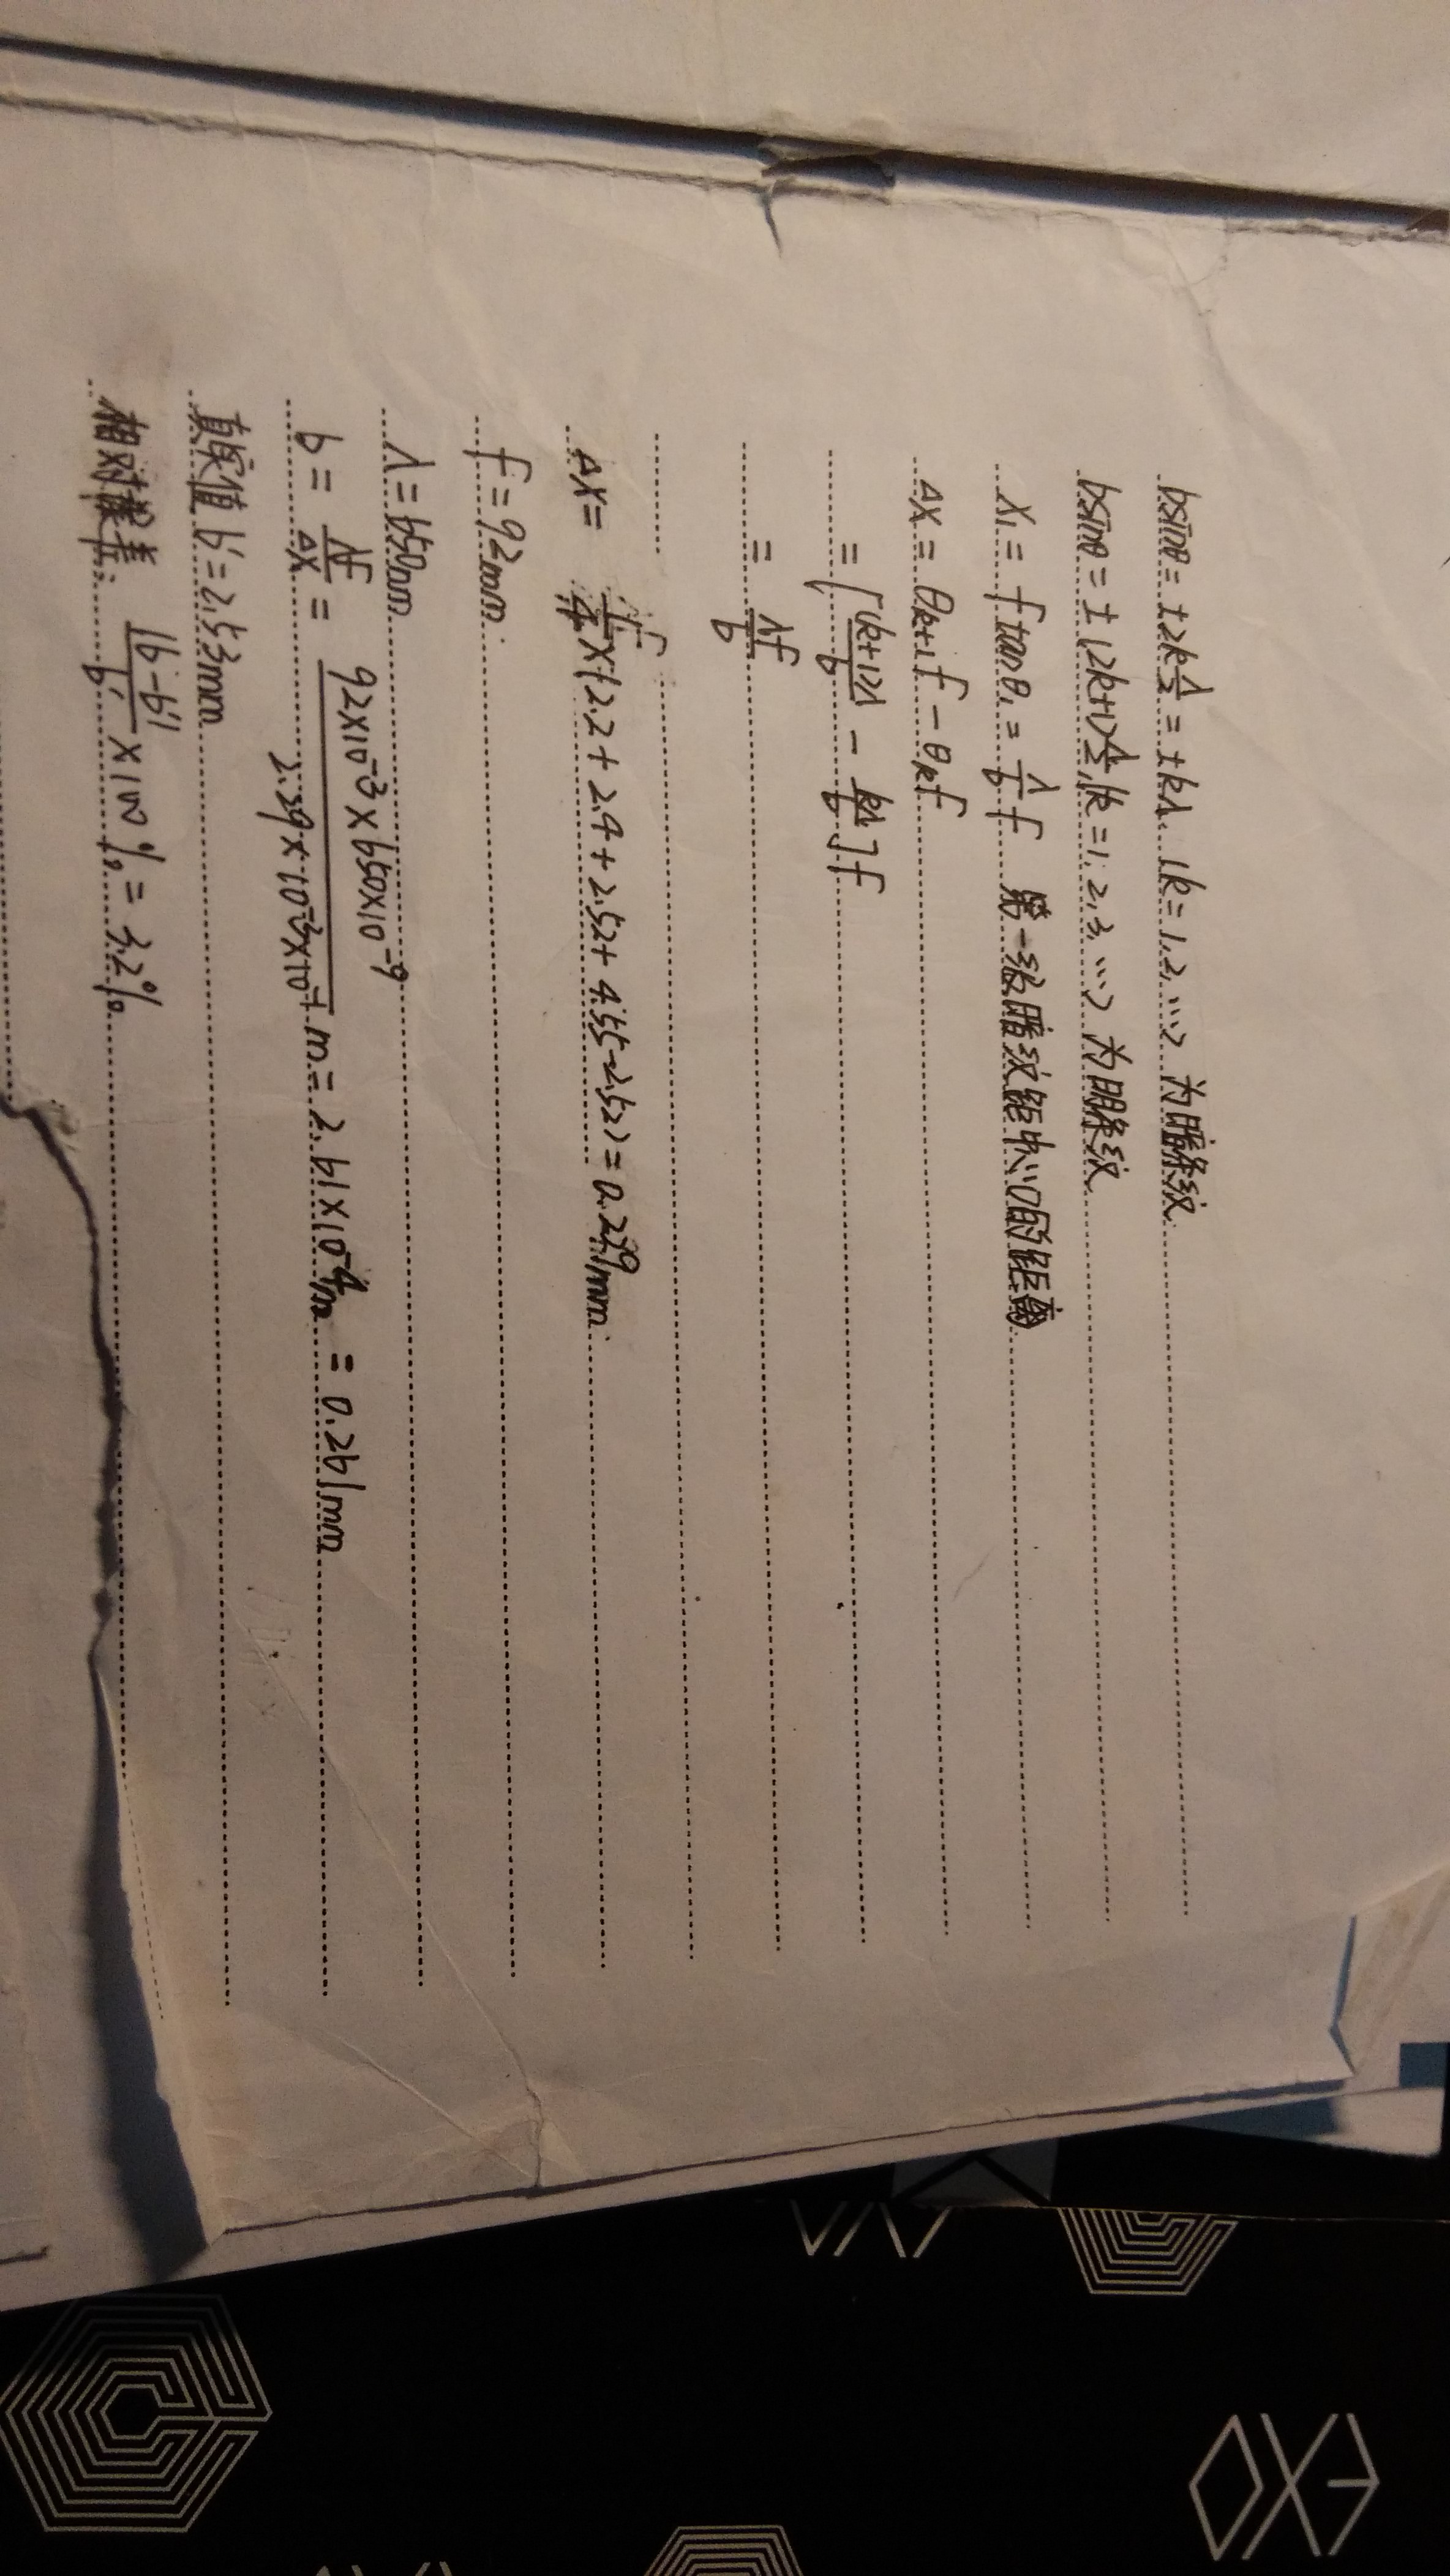 bsinθ = ±2k λ/2 = ±kλ. (k=1,2,…) 为暗条纹
bsinθ = ±(2k+1) λ/2, (k=1,2,3,…) 为明条纹
x₁ = f tanθ₁ = λ/b f 第一级暗纹距中心的距离
ΔX = θₖ₊₁f − θₖf
= [(k+1)λ/b − kλ/b] f
= λf/b
ΔX = ×(2.2+2.4+2.52+4.55−2.52) = mm
f = 92mm
λ = 650nm
b = λf/ΔX = 92×10⁻³×650×10⁻⁹ / 2.29×10⁻³×10⁻¹ m = 2.61×10⁻⁴m = 0.261mm
真实值 b' = 2.53mm
相对误差: |b−b'|/b' ×100% = 3.2%
EXO